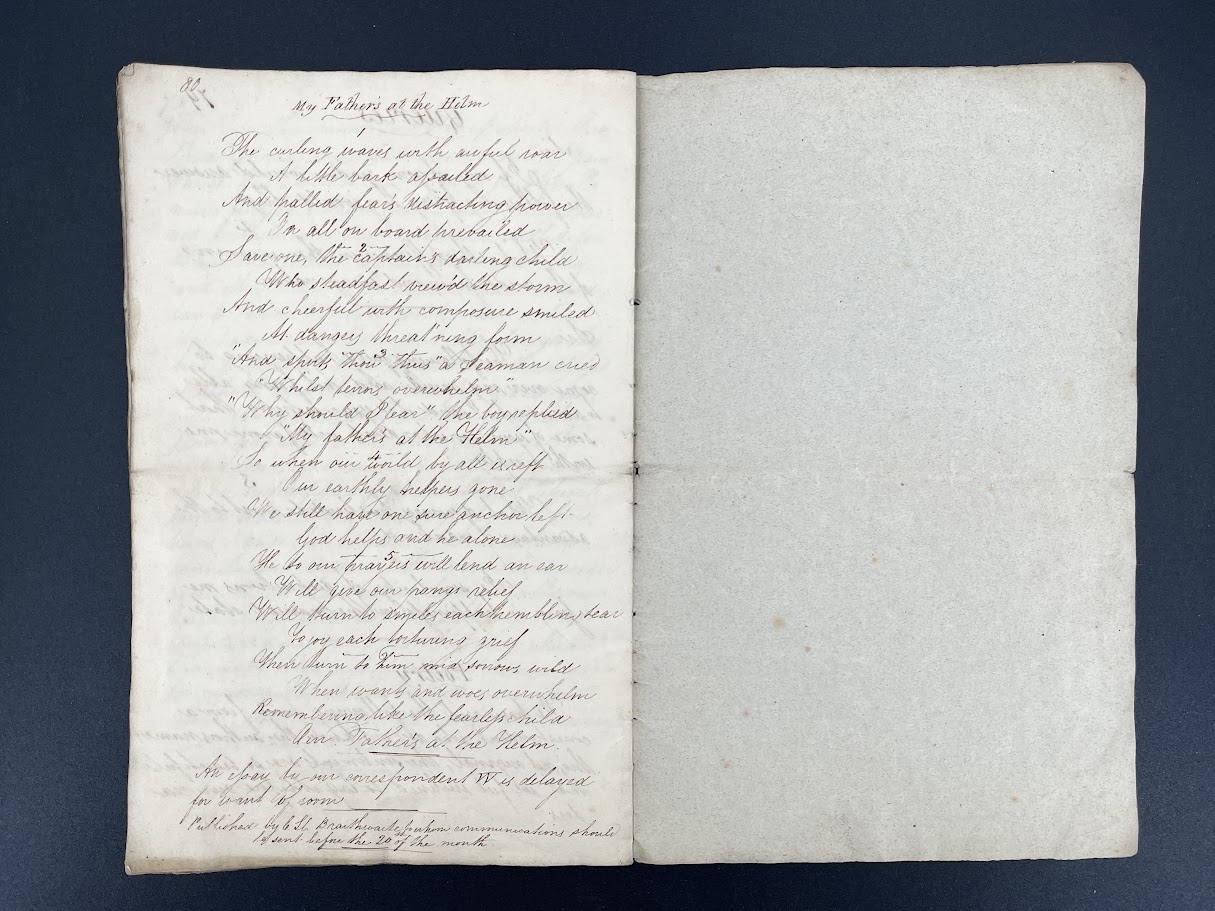 80
My Father's at the Helm
1
The curling waves with awful roar
A little bark assailed
And pallid fear's distracting power
On all on board prevailed
2
Save one, the captain's darling child
Who steadfast view'd the storm
And cheerful with composure smiled
At dangers threat'ning form
3
"And sports thou thus" a Seaman cried
"Whilst terrors overwhelm"
"Why should I fear" the boy replied
"My father's at the Helm"
4
So when our world by all is reft
Our earthly helpers gone
We still have one sure anchor left
God helps and he alone
5
He to our prayers will lend an ear
Will give our pangs relief
Will turn to smiles each trembling tear
To joy each torturing grief
Then turn to him mid sorrows wild
When wants and woes overwhelm
Remembering like the fearless child
Our Father's at the Helm.
An essay by our correspondent W is delayed
for want of room
Published by C Ll. Braithwaite, to whom communications should
be sent before the 20 of the month